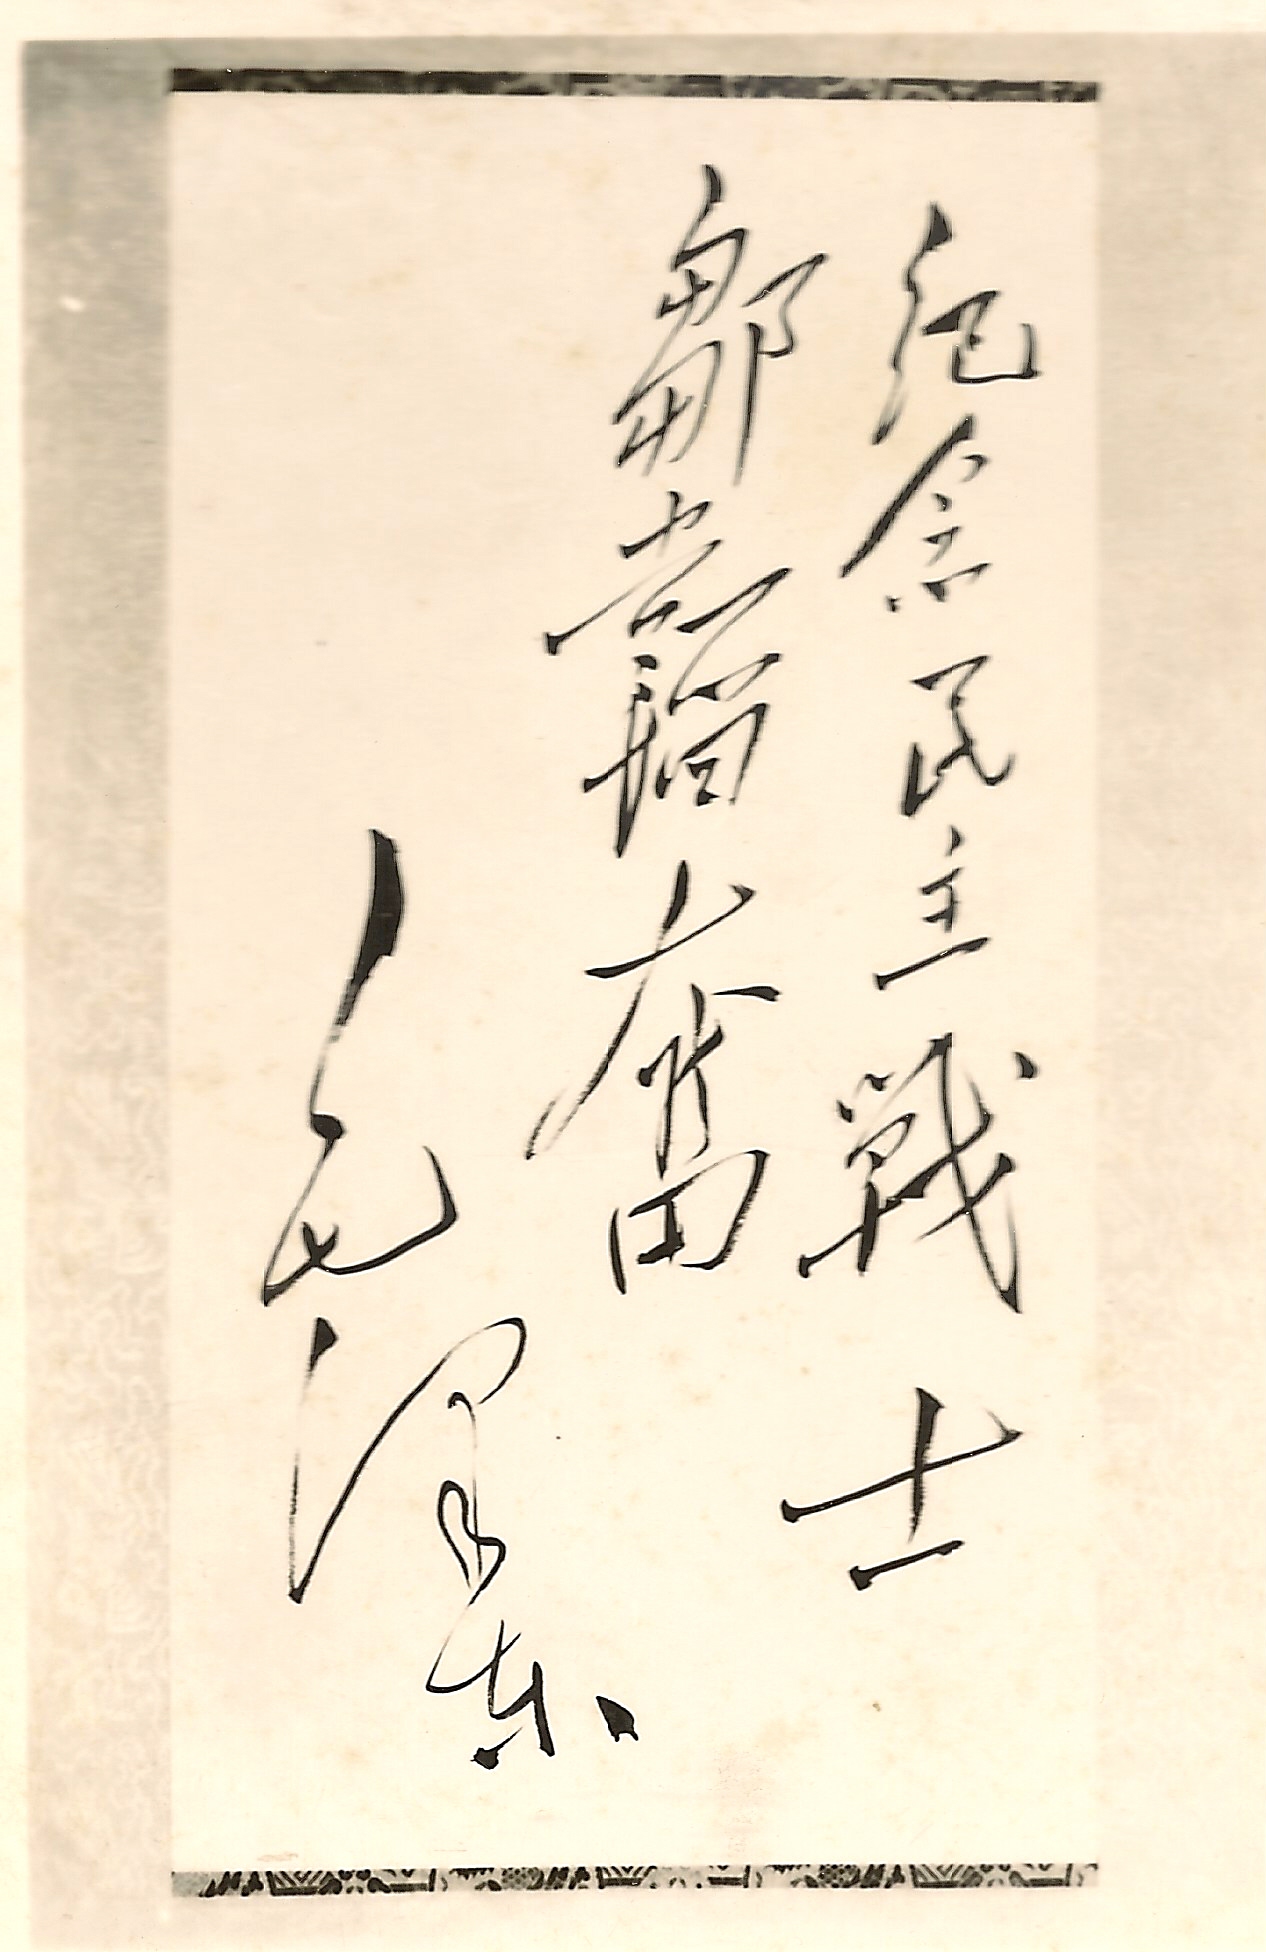 紀念民主戰士
鄒韜奮
毛澤東